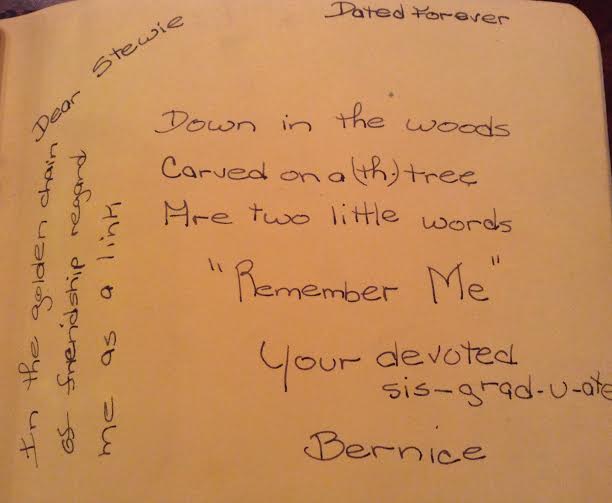 Dated Forever
Dear Stewie
Down in the woods
Carved on a (th) tree
Are two little words
"Remember Me"
Your devoted
sis-grad-u-ate
Bernice
In the golden chain
of friendship regard
me as a link